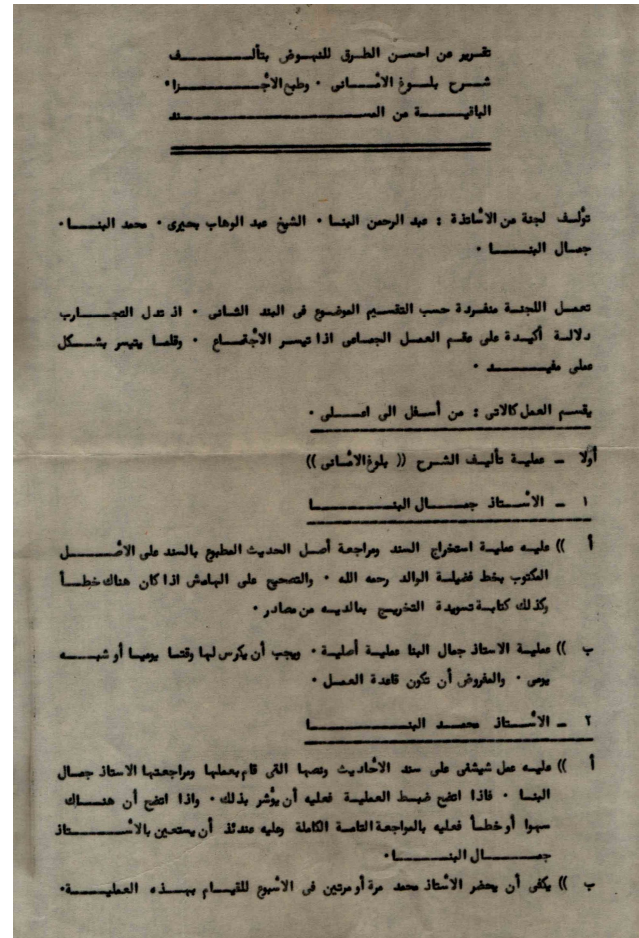 تقرير عن احسن الطرق للنهوض بتألـــــــيف
شــرح بلــوغ الأمــانى ٠ وطبع الأجــــــزا٠
الباقيــــة من المســــــــــــند
تؤلف لجنة من الأساتذة : عبد الرحمن البنـا ٠ الشيخ عبد الوهاب بحيرى ٠ محمد البنـــا ٠
جمــال البنـــــا ٠
تعمــل اللجنــة منفـردة حسب التقسيـم الموضوع فى البند الثــانى ٠ اذ تدل التجــــارب
دلالـة أكيــدة على عقــم العمــل الجماعى اذا تيســر الأجتمــاع ٠ وقلمـا يتيسر بشــكل
عملى مفيــــد ٠
يقســم العمل كالاتى : من أسفل الى اعــــلى ٠
أولا ــ عمليـة تأليف الشرح (( بلوغ الامــانى ))
١ ــ الأســتاذ جمـــــال البنــــــــا
أ )) عليـه عمليـة استخراج السند ومراجعة أصل الحديث المطبوع بالسند على الأصــــل
المكتوب بخط فضيلـة الوالد رحمه الله ٠ والتصحيح على الهامش اذا كان هناك خطــأ
وكذلك كتابـة تسويدة التخريــج بمالديــه من مصادر ٠
ب )) عمليـة الاستاذ جمال البنا عمليــة أصليـة ٠ ويجب أن يكرس لهـا وقتــا يوميـا أو شبــه
يومى ٠ والمفروض أن تكون قاعدة العمــل ٠
٢ ــ الأســتاذ محمــد البنــــــــا
أ )) عليـه عمل شيشنى على سند الأحاديث ونصهـا التى قام بعملهـا ومراجعتهـا الاستاذ جمـال
البنـا ٠ فاذا اتضح ضبـط العمليـة فعليه أن يؤشر بذلك ٠ واذا اتضح أن هنــاك
سهوا أو خطــأ فعليه بالمراجعة التامـة الكاملة وعليه عندئذ أن يستعين بالأســــتاذ
جمـــــال البنــــــا ٠
ب )) يكفى أن يحضر الأستاذ محمد مرة أو مرتين فى الأسبوع للقيــام بهــذه العمليــــة ٠